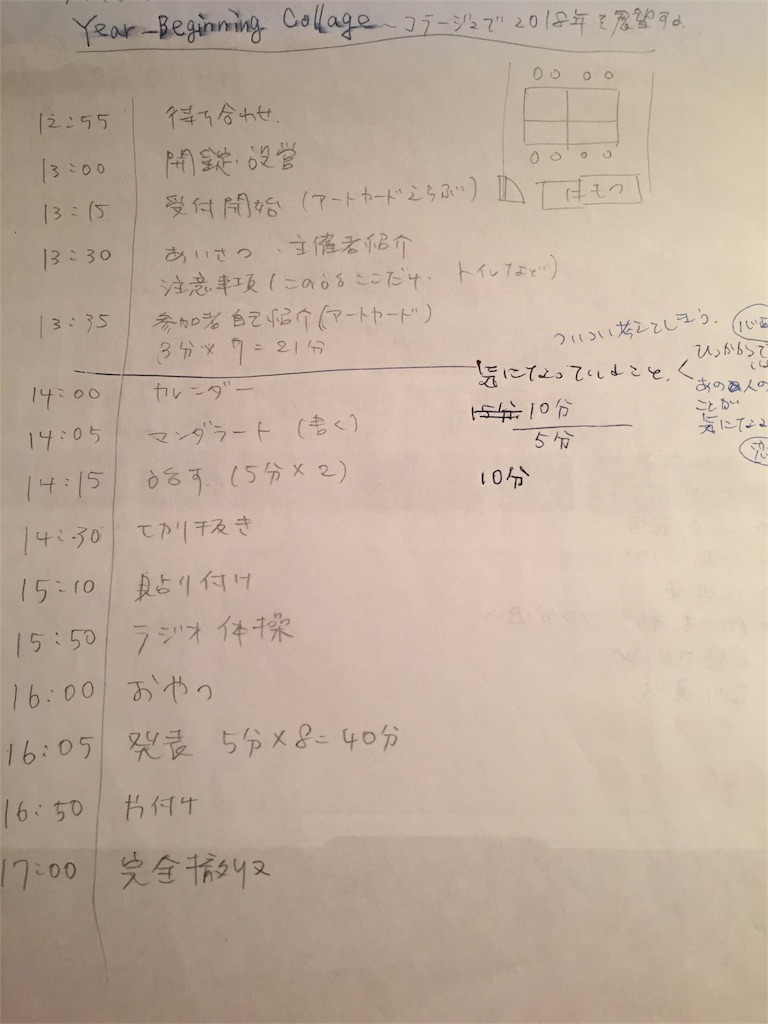 Year-Beginning Collage ~コラージュで2018年を展望する
12:55 待ち合わせ.
13:00 開錠・設営
13:15 受付開始 (アートカードえらぶ)
はもつ
13:30 あいさつ・主催者紹介
注意事項(この話ここだけ. トイレなど)
13:35 参加者自己紹介(アートカード)
3分×7=21分
ついつい考えてしまう.
気になっていること.
ひっかかって
あの人の
ことが
気になる
14:00 カレンダー
15分 10分
5分
14:05 マンダラート (書く)
14:15 話す. (5分×2)
10分
14:30 切り抜き
15:10 貼り付け
15:50 ラジオ体操
16:00 おやつ
16:05 発表 5分×8=40分
16:50 片付け
17:00 完全撤収